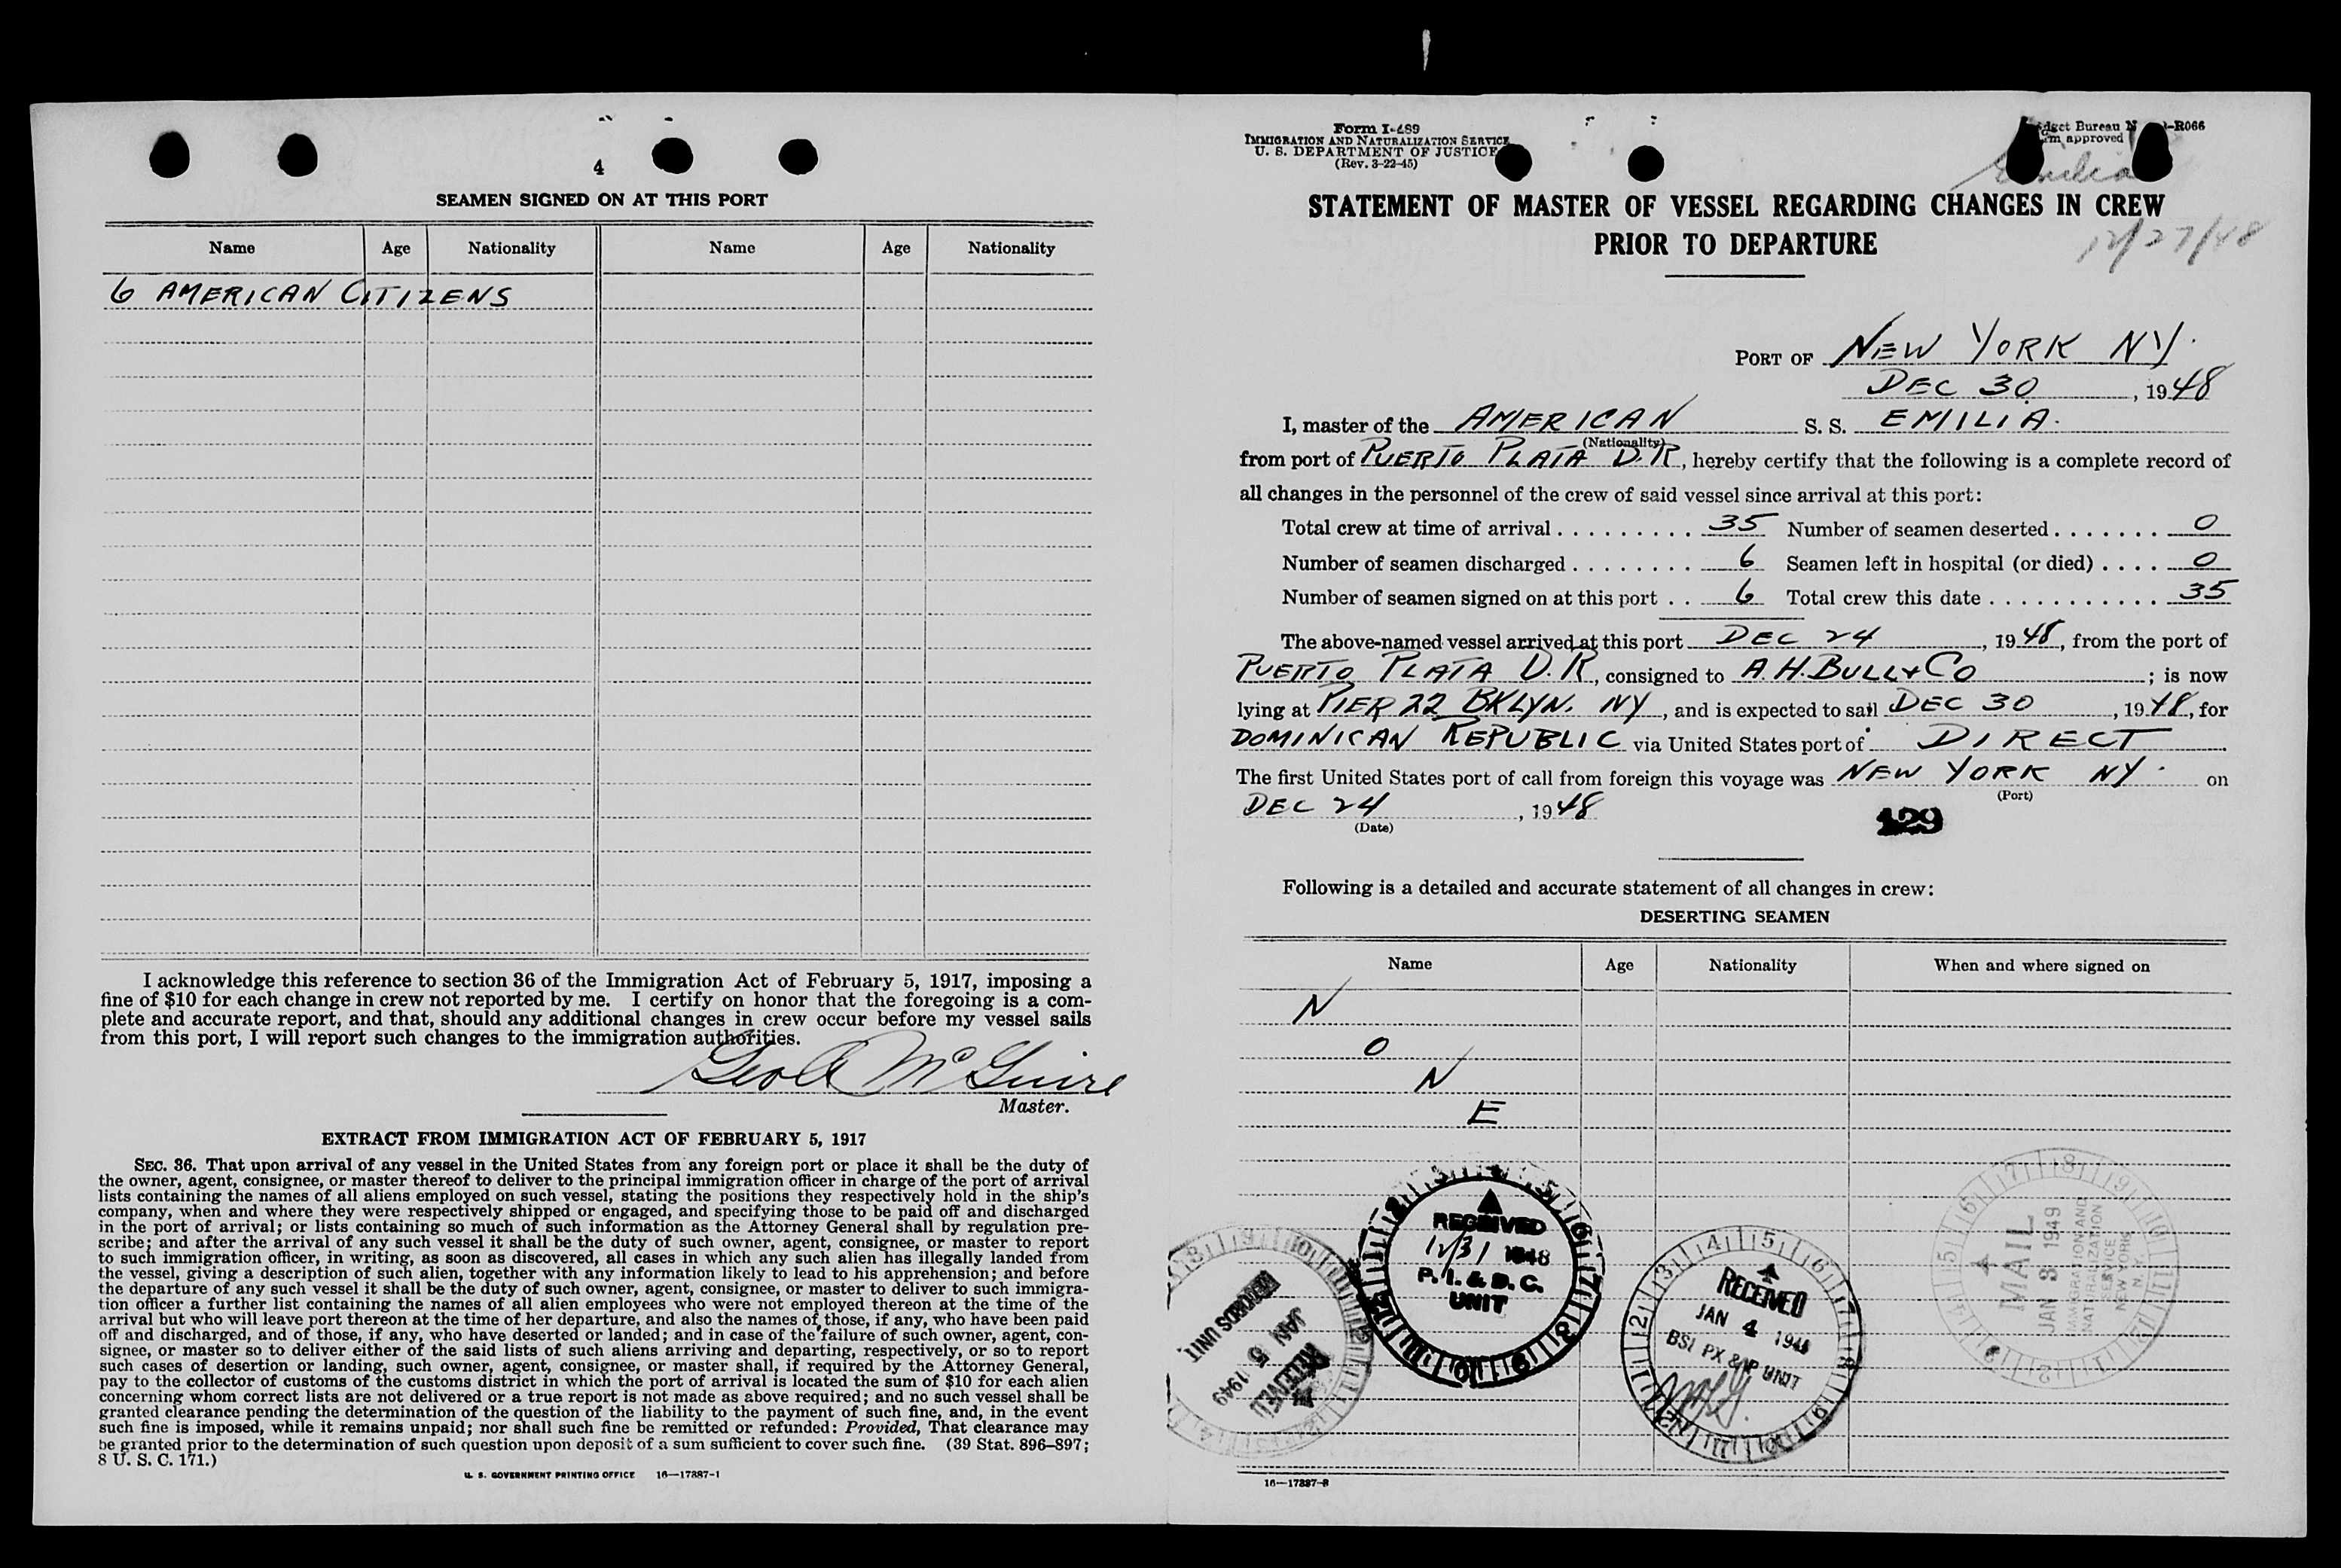 4
SEAMEN SIGNED ON AT THIS PORT
Name Age Nationality Name Age Nationality
6 AMERICAN CITIZENS
I acknowledge this reference to section 36 of the Immigration Act of February 5, 1917, imposing a
fine of $10 for each change in crew not reported by me. I certify on honor that the foregoing is a com-
plete and accurate report, and that, should any additional changes in crew occur before my vessel sails
from this port, I will report such changes to the immigration authorities.
Geo A McGuire
Master.
EXTRACT FROM IMMIGRATION ACT OF FEBRUARY 5, 1917
SEC. 36. That upon arrival of any vessel in the United States from any foreign port or place it shall be the duty of
the owner, agent, consignee, or master thereof to deliver to the principal immigration officer in charge of the port of arrival
lists containing the names of all aliens employed on such vessel, stating the positions they respectively hold in the ship's
company, when and where they were respectively shipped or engaged, and specifying those to be paid off and discharged
in the port of arrival; or lists containing so much of such information as the Attorney General shall by regulation pre-
scribe; and after the arrival of any such vessel it shall be the duty of such owner, agent, consignee, or master to report
to such immigration officer, in writing, as soon as discovered, all cases in which any such alien has illegally landed from
the vessel, giving a description of such alien, together with any information likely to lead to his apprehension; and before
the departure of any such vessel it shall be the duty of such owner, agent, consignee, or master to deliver to such immigra-
tion officer a further list containing the names of all alien employees who were not employed thereon at the time of the
arrival but who will leave port thereon at the time of her departure, and also the names of those, if any, who have been paid
off and discharged, and of those, if any, who have deserted or landed; and in case of the failure of such owner, agent, con-
signee, or master so to deliver either of the said lists of such aliens arriving and departing, respectively, or so to report
such cases of desertion or landing, such owner, agent, consignee, or master shall, if required by the Attorney General,
pay to the collector of customs of the customs district in which the port of arrival is located the sum of $10 for each alien
concerning whom correct lists are not delivered or a true report is not made as above required; and no such vessel shall be
granted clearance pending the determination of the question of the liability to the payment of such fine, and, in the event
such fine is imposed, while it remains unpaid; nor shall such fine be remitted or refunded: Provided, That clearance may
be granted prior to the determination of such question upon deposit of a sum sufficient to cover such fine. (39 Stat. 896–897;
8 U. S. C. 171.)
U. S. GOVERNMENT PRINTING OFFICE 16—17887-1
Form I-489
IMMIGRATION AND NATURALIZATION SERVICE
U. S. DEPARTMENT OF JUSTICE
(Rev. 3-22-45)
Bureau -R066
approved
Emilia
STATEMENT OF MASTER OF VESSEL REGARDING CHANGES IN CREW
PRIOR TO DEPARTURE
12/27/48
PORT OF NEW YORK NY.
DEC 30, 1948
I, master of the AMERICAN S. S. EMILIA.
(Nationality)
from port of PUERTO PLATA D.R, hereby certify that the following is a complete record of
all changes in the personnel of the crew of said vessel since arrival at this port:
Total crew at time of arrival . . . . . . . . . . 35 Number of seamen deserted . . . . . . . 0
Number of seamen discharged . . . . . . . . 6 Seamen left in hospital (or died) . . . . 0
Number of seamen signed on at this port . . 6 Total crew this date . . . . . . . . . . . . 35
The above-named vessel arrived at this port DEC 24, 1948, from the port of
PUERTO PLATA D.R, consigned to A.H.BULL+CO; is now
lying at PIER 22 BKLYN. NY, and is expected to sail DEC 30, 1948, for
DOMINICAN REPUBLIC via United States port of DIRECT
The first United States port of call from foreign this voyage was NEW YORK NY. on
(Port)
DEC 24, 1948
(Date)
129
Following is a detailed and accurate statement of all changes in crew:
DESERTING SEAMEN
Name Age Nationality When and where signed on
N
O
N
E
RECORDS UNIT
JAN 5 1949
RECEIVED
RECEIVED
12/31 1948
P. I. & D. C.
UNIT
RECEIVED
JAN 4 194
BSI PX &P UNIT
MAIL
JAN 3 1949
IMMIGRATION AND
NATURALIZATION
SERVICE
NEW YORK
N. Y.
16—17887-2